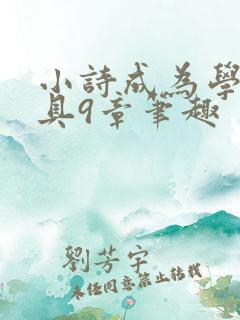 小詩成為學
具9章筆趣
劉芳宇
未任同意禁止轉載